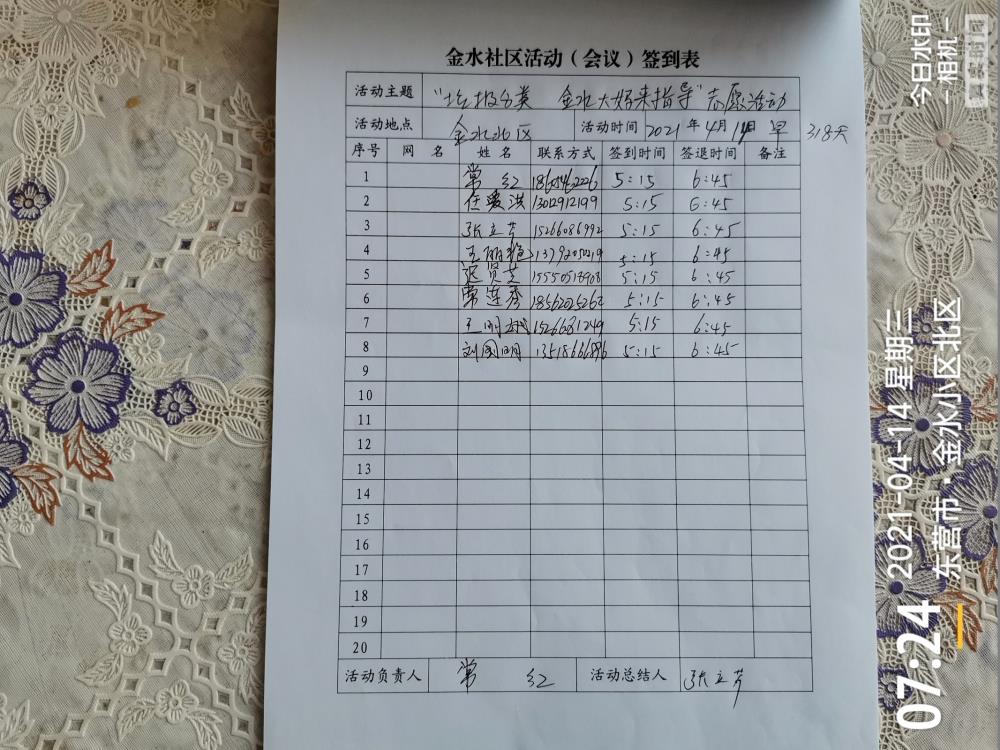 金水社区活动（会议）签到表
活动主题 "垃圾分类 金水大妈来指导"志愿活动
活动地点 金水北区 活动时间 2021年4月14日 早 318天
序号 网名 姓名 联系方式 签到时间 签退时间 备注
1 常红 5:15 6:45
2 任爱洪 13012912199 5:15 6:45
3 张立芳 15266086992 5:15 6:45
4 王丽艳 5:15 6:45
5 迟贤芝 5:15 6:45
6 常莲香 5:15 6:45
7 王明 15266081249 5:15 6:45
8 刘国明 5:15 6:45
9
10
11
12
13
14
15
16
17
18
19
20
活动负责人 常红 活动总结人 张立芳
今日水印
-相机-
07:24
2021-04-14 星期三
东营市·金水小区北区